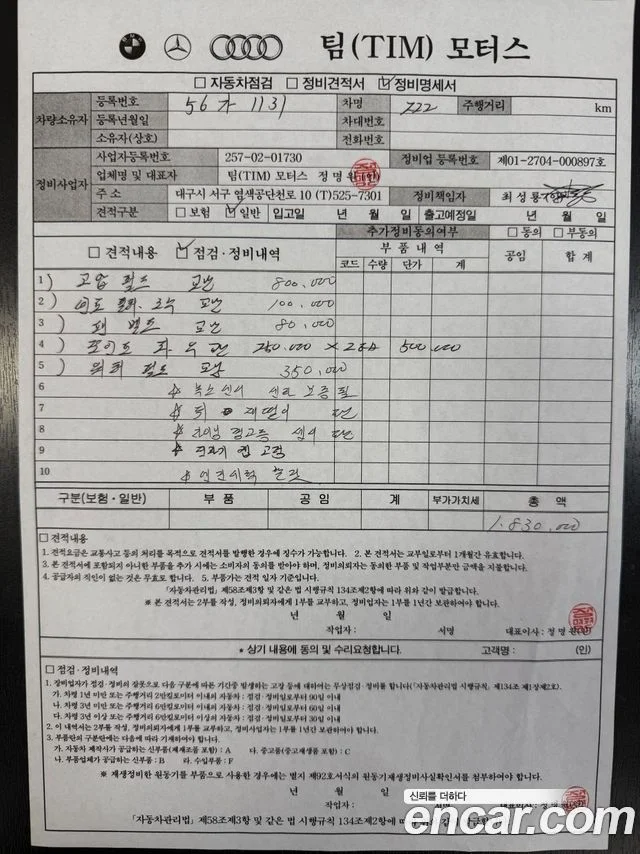 팀(TIM) 모터스
□ 자동차점검 □ 정비견적서 ☑ 정비명세서
차량소유자
등록번호 56가 1131 차명 주행거리 km
등록년월일 차대번호
소유자(상호) 전화번호
정비사업자
사업자등록번호 257-02-01730 정비업 등록번호 제01-2704-000897호
업체명 및 대표자 팀(TIM) 모터스 정명원(인)
주 소 대구시 서구 염색공단천로 10 (T)525-7301 정비책임자 최성룡
견적구분 □ 보험 ☑ 일반 입고일 년 월 일 출고예정일 년 월 일
□ 견적내용 ☑ 점검·정비내역 추가정비동의여부 □ 동의 □ 부동의
부 품 내 역 공임 합 계
코드 수량 단가 계
1) 고압 펌프 교환 800,000
2) 교환 100,000
3) 팬 벨트 교환 80,000
4) 250,000 × 2EA 500,000
5) 워터 펌프 교환 350,000
6
7
8
9
10
구분(보험·일반) 부 품 공 임 계 부가가치세 총 액
1,830,000
□ 견적내용
1. 견적요금은 교통사고 등의 처리를 목적으로 견적서를 발행한 경우에 징수가 가능합니다. 2. 본 견적서는 교부일로부터 1개월간 유효합니다.
3. 본 견적서에 포함되지 아니한 부품을 추가 시에는 소비자의 동의를 받아야 하며, 정비의뢰자는 동의한 부품 및 작업부분만 금액을 지불합니다.
4. 공급자의 직인이 없는 것은 무효로 합니다. 5. 부품가는 견적 일자 기준입니다.
「자동차관리법」 제58조제3항 및 같은 법 시행규칙 134조제2항에 따라 위와 같이 발급합니다.
※ 본 견적서는 2부를 작성, 정비의뢰자에게 1부를 교부하고, 정비업자는 1부를 1년간 보관하여야 합니다.
년 월 일
작업자 : 서명 대표이사 : 정명원(인)
* 상기 내용에 동의 및 수리요청합니다. 고객명 : (인)
□ 점검·정비내역
1. 정비업자가 점검·정비의 잘못으로 다음 구분에 따른 기간중 발생하는 고장 등에 대하여는 무상점검·정비를 합니다(「자동차관리법 시행규칙」 제134조 제1항제2호).
가. 차령 1년 미만 또는 주행거리 2만킬로미터 이내의 자동차 : 점검·정비일로부터 90일 이내
나. 차령 3년 미만 또는 주행거리 6만킬로미터 이내의 자동차 : 점검·정비일로부터 60일 이내
다. 차령 3년 이상 또는 주행거리 6만킬로미터 이상의 자동차 : 점검·정비일로부터 30일 이내
2. 이 내역서는 2부를 작성, 정비의뢰자에게 1부를 교부하고, 정비사업자는 1부를 1년간 보관하여야 합니다.
3. 부품란의 구분란에는 다음에 따라 기재하여야 합니다.
가. 자동차 제작사가 공급하는 신부품(재제조품 포함) : A 다. 중고품(중고재생품 포함) : C
나. 부품업체가 공급하는 신부품 : B 라. 수입부품 : F
※ 재생정비한 원동기를 부품으로 사용한 경우에는 별지 제92호서식의 원동기재생정비사실확인서를 첨부하여야 합니다.
년 월 일
작업자 : 대표이사 : 정명원(인)
「자동차관리법」 제58조제3항 및 같은 법 시행규칙 134조제2항에 따
신뢰를 더하다
encar.com